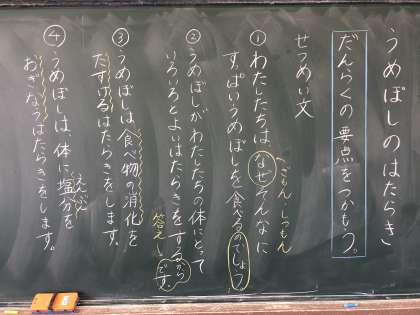 うめぼしのはたらき
だんらくの要点をつかもう。
せつめい文
ぎもん、しつもん
①わたしたちは、なぜそんなに
すっぱいうめぼしを食べるのでしょう
②うめぼしがわたしたちの体にとって
いろいろとよいはたらきをするからです。
答え
③うめぼしは食べ物の消化を
たすけるはたらきをします。
④うめぼしは、体に塩分を
えんぶん
おぎなうはたらきをします。